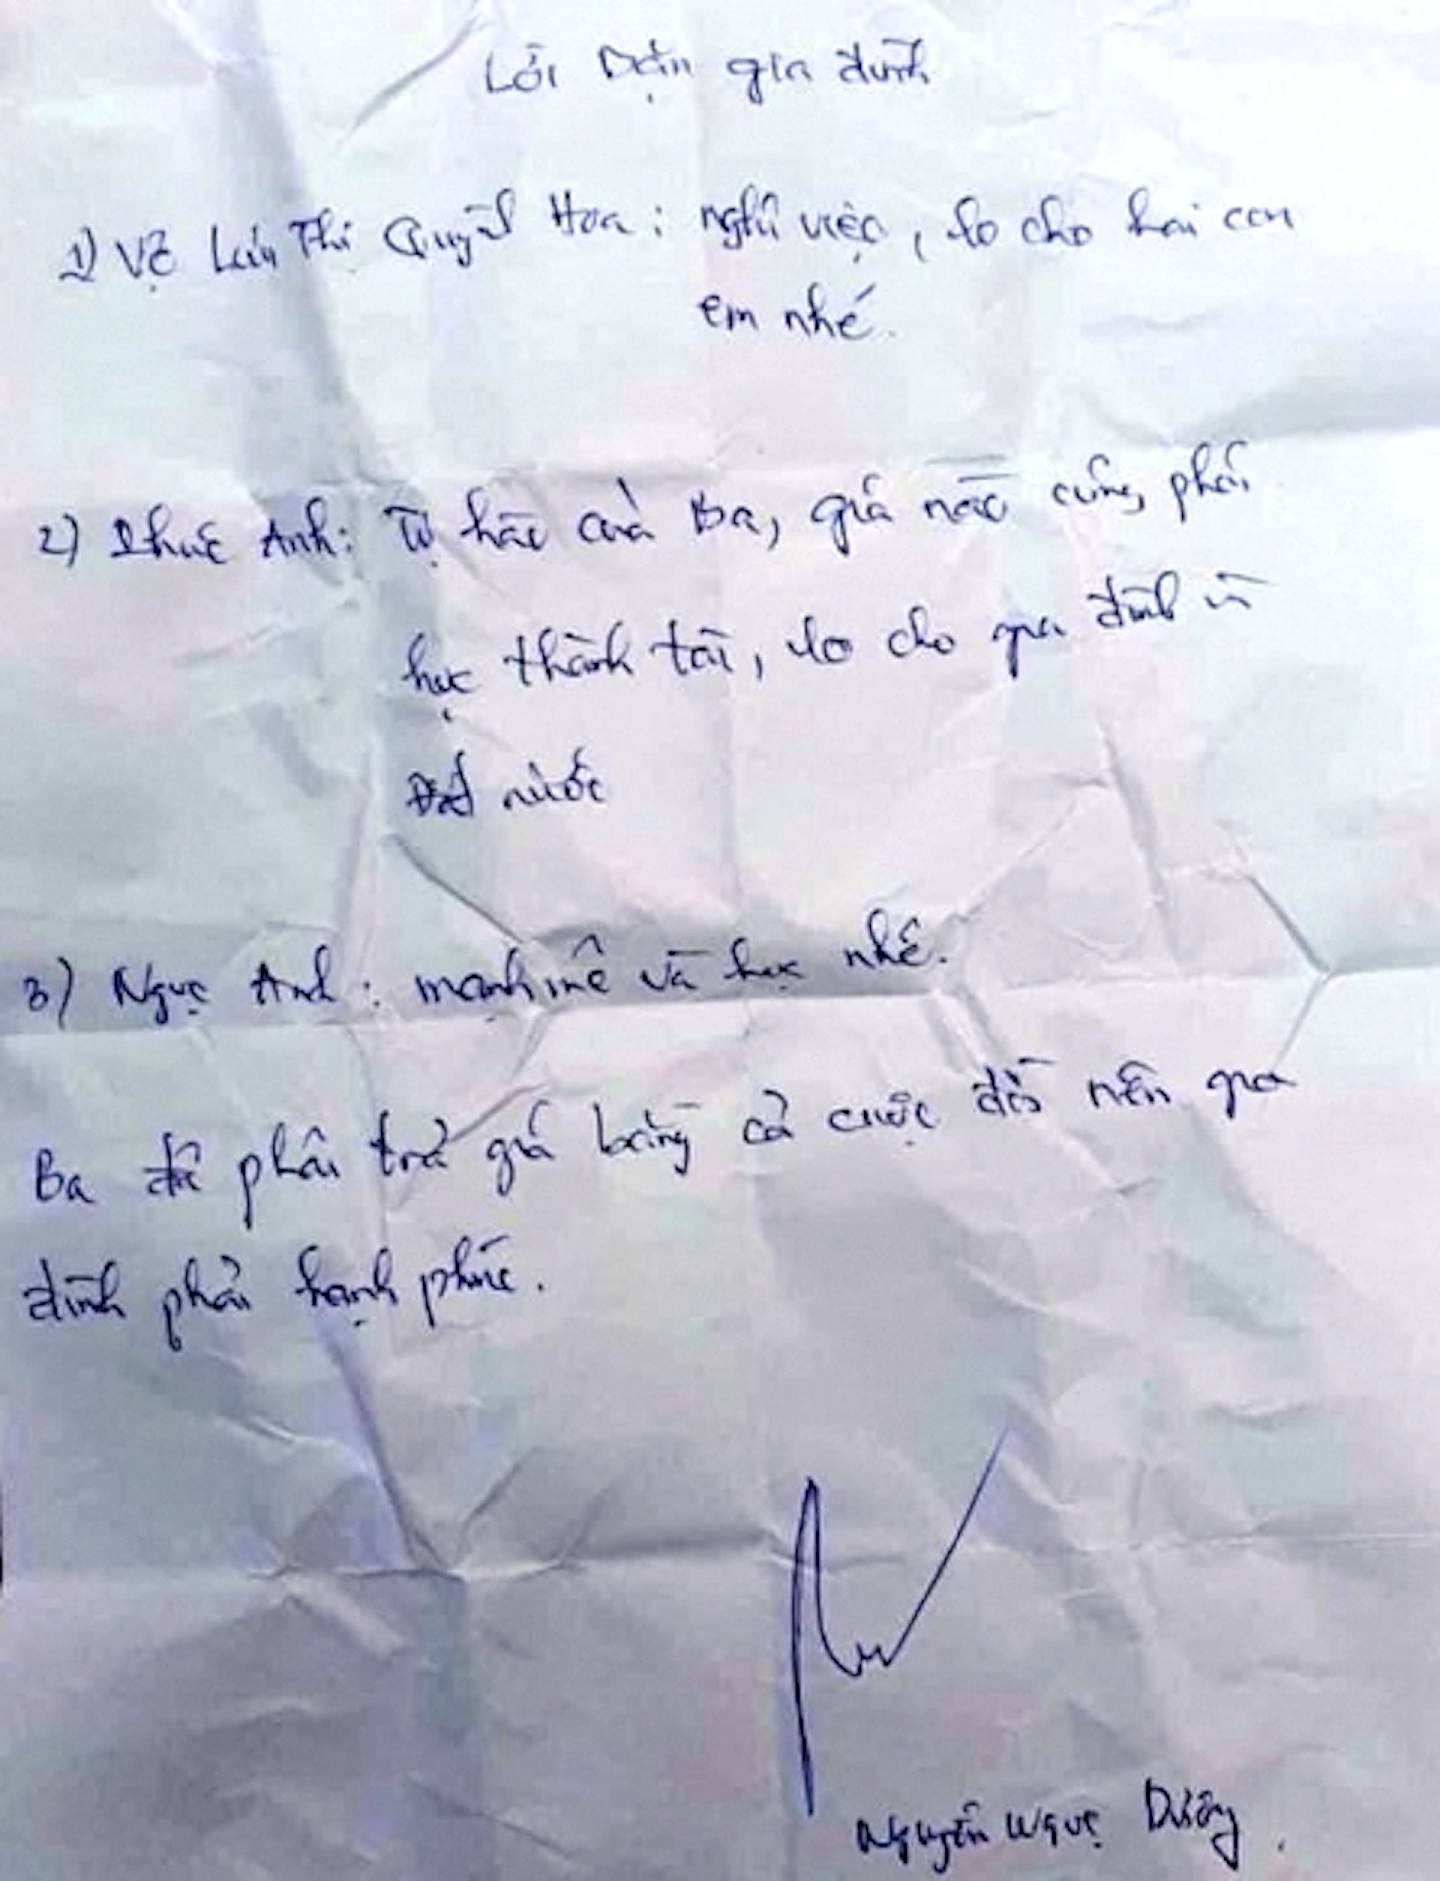 Lời Dặn gia đình
1) Vợ Lưu Thị Quỳnh Hoa: nghỉ việc, lo cho hai con
em nhé.
2) Thục Anh: Tự hào của Ba, giá nào cũng phải
học thành tài, lo cho gia đình vì
Đất nước
3) Ngọc Anh: mạnh mẽ và học nhé.
Ba đã phải trả giá bằng cả cuộc đời nên gia
đình phải hạnh phúc.
Nguyễn Ngọc Dương.